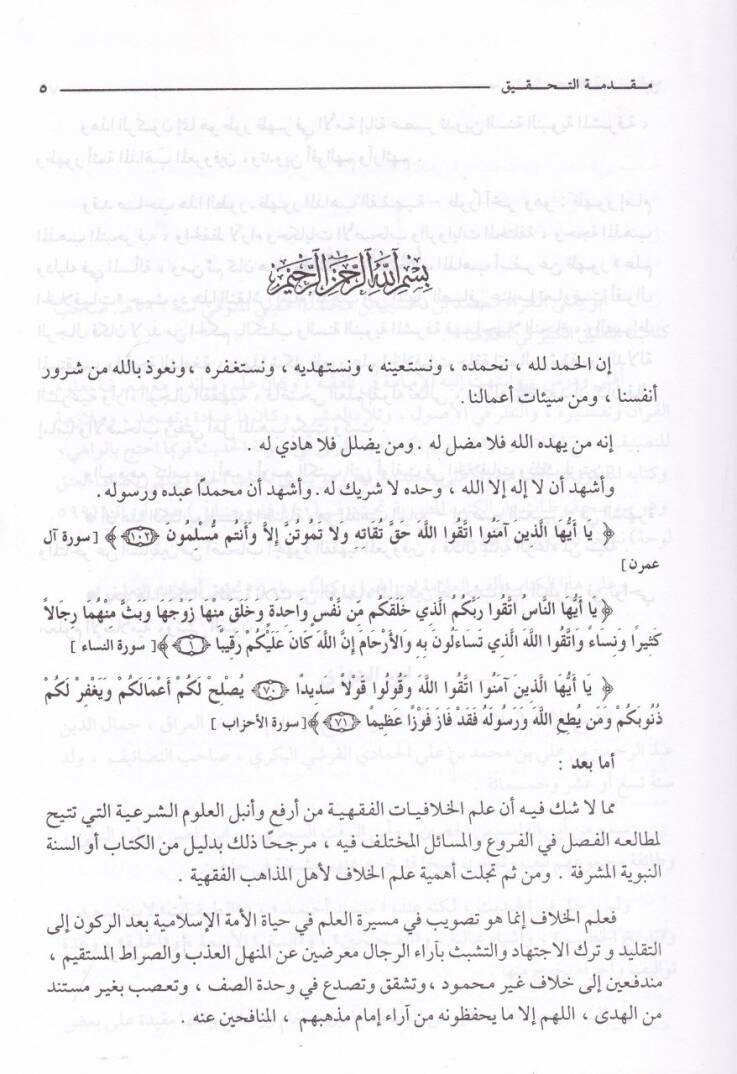 مقدمة التحقيق ٥
بسم الله الرحمن الرحيم
إن الحمد لله ، نحمده ، ونستعينه ، ونستهديه ، ونستغفره ، ونعوذ بالله من شرور
أنفسنا ، ومن سيئات أعمالنا .
إنه من يهده الله فلا مضل له . ومن يضلل فلا هادي له .
وأشهد أن لا إله إلا الله ، وحده لا شريك له . وأشهد أن محمدًا عبده ورسوله .
﴿ يا أَيُّهَا الَّذِينَ آمَنُوا اتَّقُوا اللَّهَ حَقَّ تُقَاتِهِ وَلا تَمُوتُنَّ إِلاَّ وَأَنتُم مُّسْلِمُونَ ﴿١٠٢﴾ ﴾ [سورة آل
عمرن]
﴿ يا أَيُّهَا النَّاسُ اتَّقُوا رَبَّكُمُ الَّذِي خَلَقَكُم مِّن نَّفْسٍ وَاحِدَةٍ وَخَلَقَ مِنْهَا زَوْجَهَا وَبَثَّ مِنْهُمَا رِجَالاً
كَثِيرًا وَنِسَاءً وَاتَّقُوا اللَّهَ الَّذِي تَسَاءَلُونَ بِهِ وَالأَرْحَامَ إِنَّ اللَّهَ كَانَ عَلَيْكُمْ رَقِيبًا ﴿١﴾ ﴾[ سورة النساء ]
﴿ يَا أَيُّهَا الَّذِينَ آمَنُوا اتَّقُوا اللَّهَ وَقُولُوا قَوْلاً سَدِيدًا ﴿٧٠﴾ يُصْلِحْ لَكُمْ أَعْمَالَكُمْ وَيَغْفِرْ لَكُمْ
ذُنُوبَكُمْ وَمَن يُطِعِ اللَّهَ وَرَسُولَهُ فَقَدْ فَازَ فَوْزًا عَظِيمًا ﴿٧١﴾ ﴾[سورة الأحزاب ]
أما بعد :
مما لا شك فيه أن علم الخلافيات الفقهية من أرفع وأنبل العلوم الشرعية التي تتيح
لمطالعه الفصل في الفروع والمسائل المختلف فيه ، مرجحًا ذلك بدليل من الكتاب أو السنة
النبوية المشرفة . ومن ثم تجلت أهمية علم الخلاف لأهل المذاهب الفقهية .
فعلم الخلاف إنما هو تصويب في مسيرة العلم في حياة الأمة الإسلامية بعد الركون إلى
التقليد و ترك الاجتهاد والتشبث بآراء الرجال معرضين عن المنهل العذب والصراط المستقيم ،
مندفعين إلى خلاف غير محمود ، وتشقق وتصدع في وحدة الصف ، وتعصب بغير مستند
من الهدى ، اللهم إلا ما يحفظونه من آراء إمام مذهبهم ، المنافحين عنه .